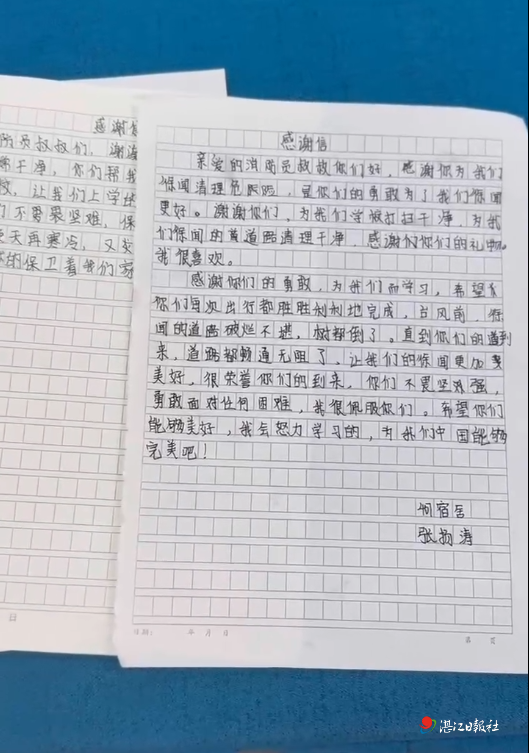 感谢信
防员叔叔们，谢谢
干净，你们帮我
让我们上学
不畏艰难，保
天再寒冷，又
的保卫着我们家
感谢信
亲爱的消防员叔叔你们好，感谢你为我们
徐闻清理危险，是你们的勇敢为了我们徐闻
更好。谢谢你们，为我们学校打扫干净，为我
们徐闻的黄道路清理干净，感谢你们的礼物。
我很喜欢。
感谢你们的勇敢，为我们而学习，希望
你们每次出行都胜胜利利地完成，台风前，徐
闻的道路破烂不堪，树都倒了。直到你们的到
来，道路都畅通无阻了，让我们的徐闻更加
美好，很荣誉你们的到来，你们不畏坚难强，
勇敢面对任何困难，我很佩服你们。希望你们
能够美好，我会努力学习的，为我们中国能够
完美吧！
张扬涛
日
日期： 年 月 日
第 页
湛江日报社